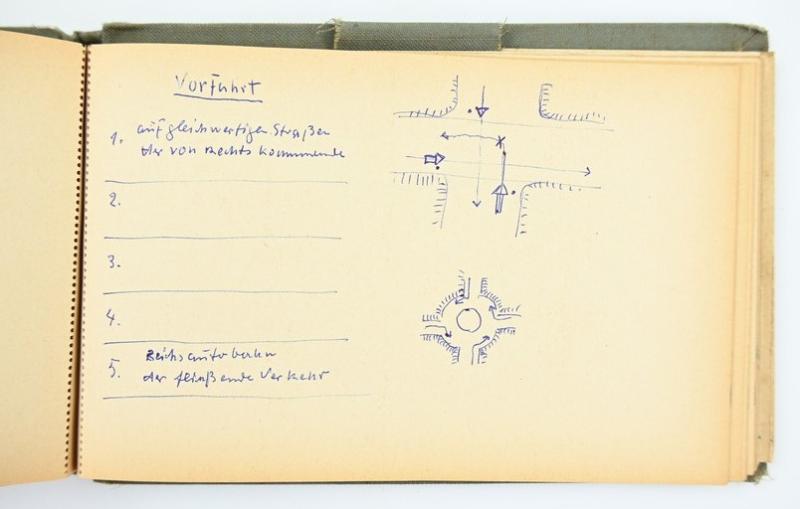 Vorfahrt
1. auf gleichwertigen Straßen
der von rechts kommende
2.
3.
4.
5. Reichsautobahn
der fließende Verkehr